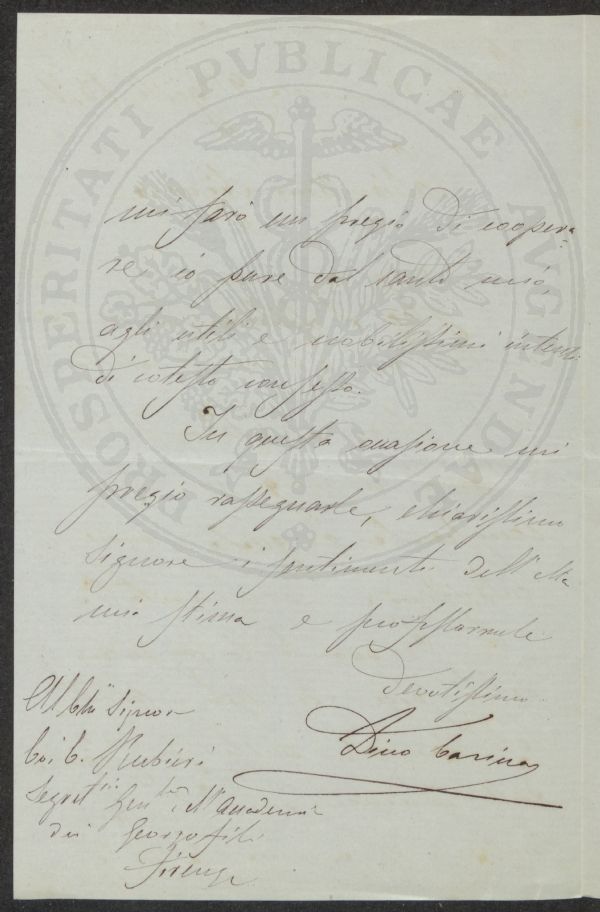 PROSPERITATI PVBLICAE AVGENDAE
mi farò un pregio di coopera-
re io pure dal canto mio,
agli utili e nobilissimi intenti
di cotesto consesso.
In questa occasione mi
pregio rassegnarle, chiarissimo
Signore i sentimenti dell'
mia stima e professarmele
Devotissimo
Dino Carina
Al Chi Signor
Rubieri
Segret Gen dell'Accademia
dei Georgofili
Firenze